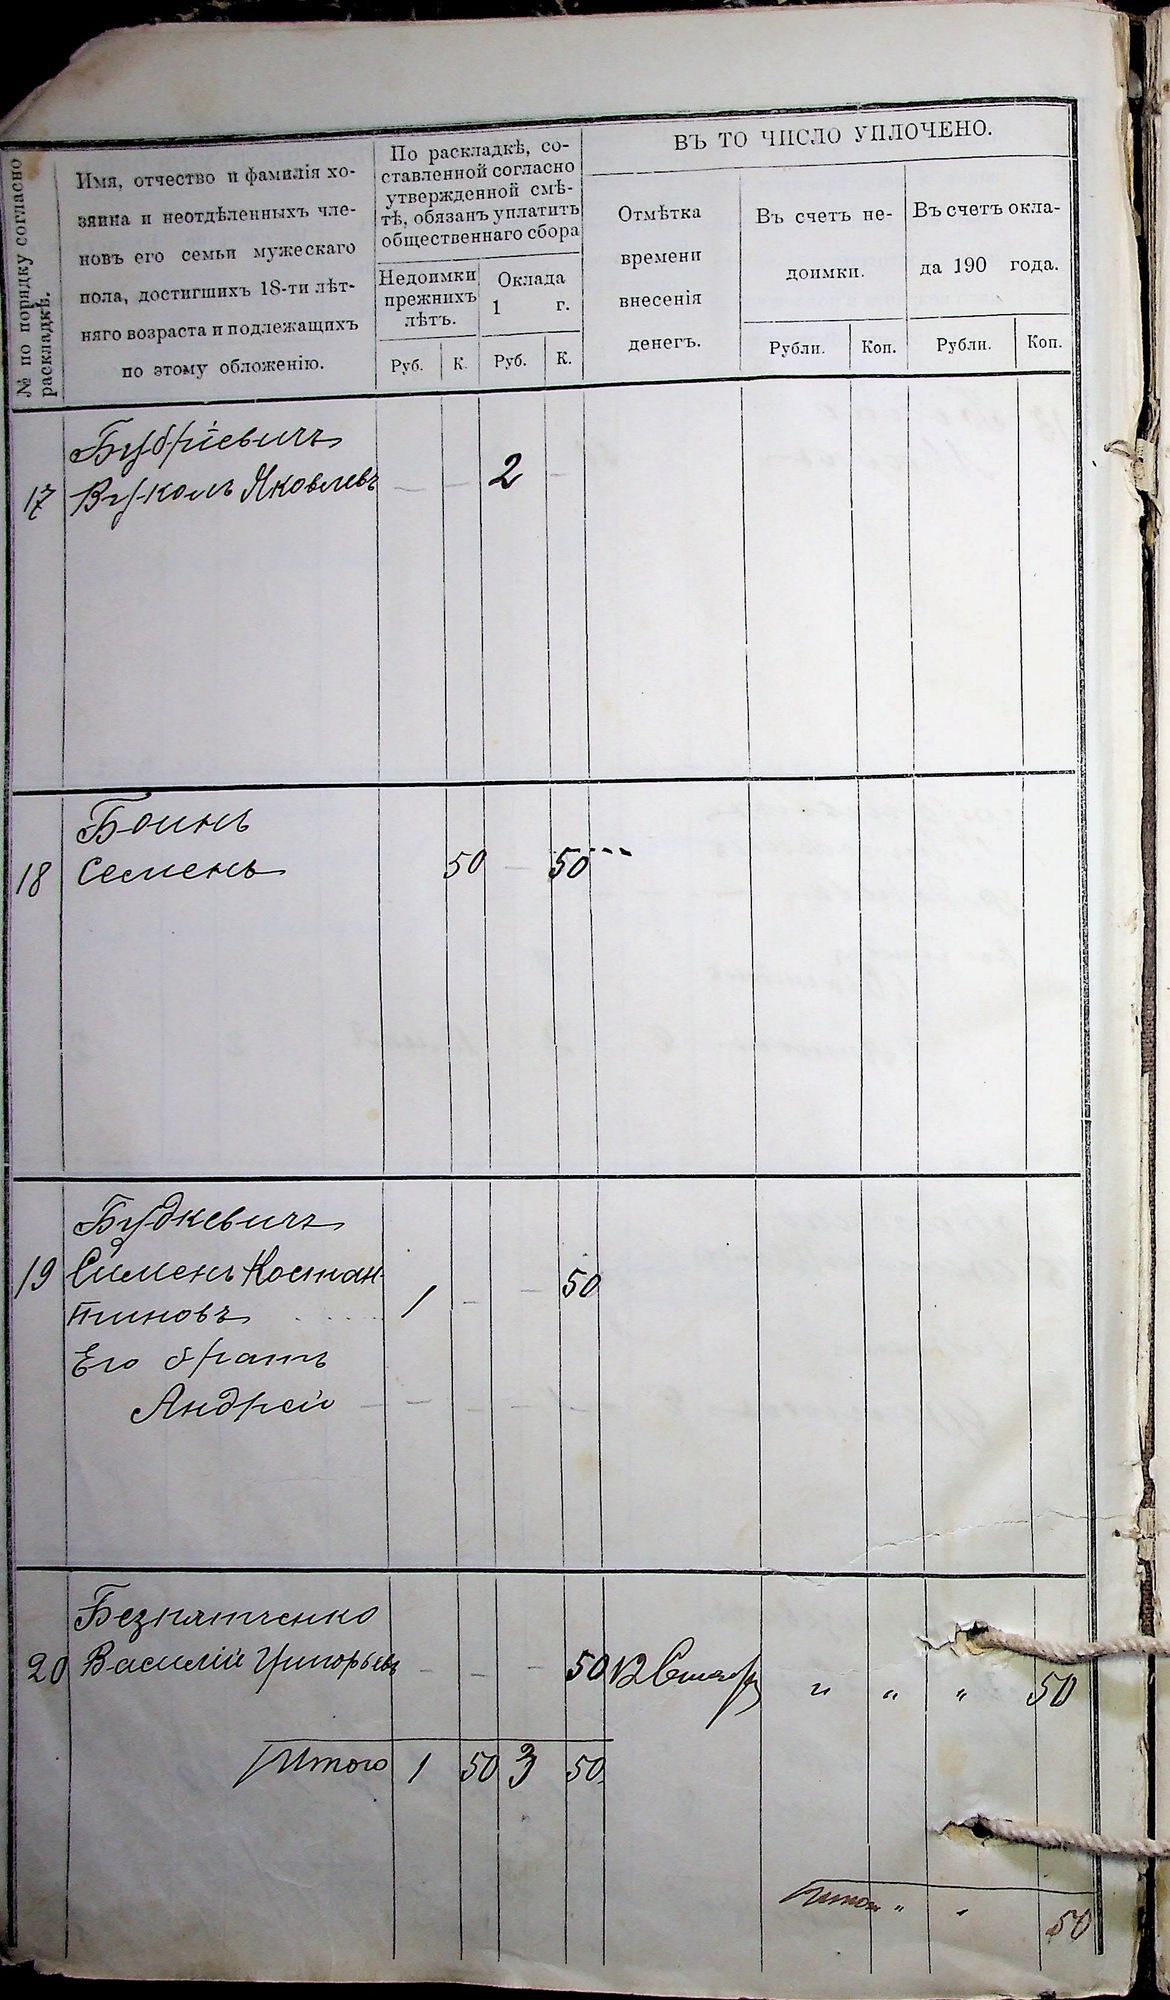 № по порядку согласно
раскладкѣ.
Имя, отчество и фамилія хо-
зяина и неотдѣленныхъ чле-
новъ его семьи мужескаго
пола, достигшихъ 18-ти лѣт-
няго возраста и подлежащихъ
по этому обложенію.
По раскладкѣ, со-
ставленной согласно
утвержденной смѣ-
тѣ, обязанъ уплатить
общественнаго сбора
Недоимки
прежнихъ
лѣтъ.
Оклада
1 г.
Руб. К. Руб. К.
ВЪ ТО ЧИСЛО УПЛОЧЕНО.
Отмѣтка
времени
внесенія
денегъ.
Въ счетъ не-
доимки.
Въ счетъ окла-
да 190 года.
Рубли. Коп. Рубли. Коп.
17 Вуколъ Яковлевъ — — 2 —
Боинъ
18 Семенъ 50 — 50
Будкевичъ
19 Сименъ Костан-
тиновъ 1 — — 50
Его братъ
Андрей — — — — —
Безпятченко
20 Василій Григорьевъ — — — 50 12 " " " 50
Итого 1 50 3 50
Итого " " 50